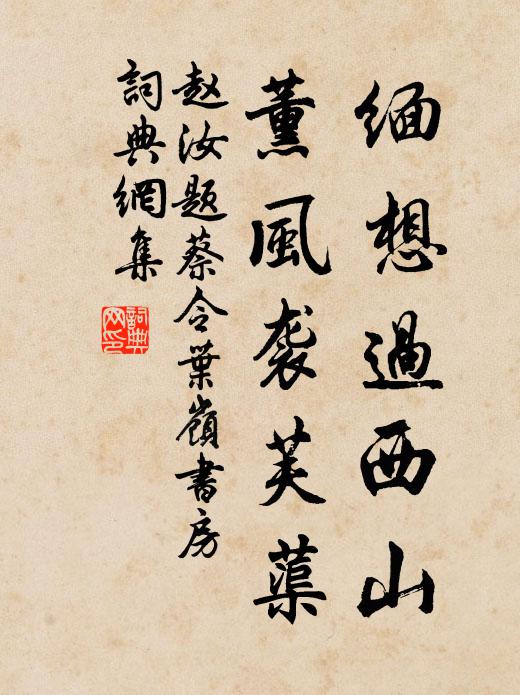 缅想過西山
薰風袭芙蕖
赵汝题蔡令葉嶺書房
詞典網集
詞典网印